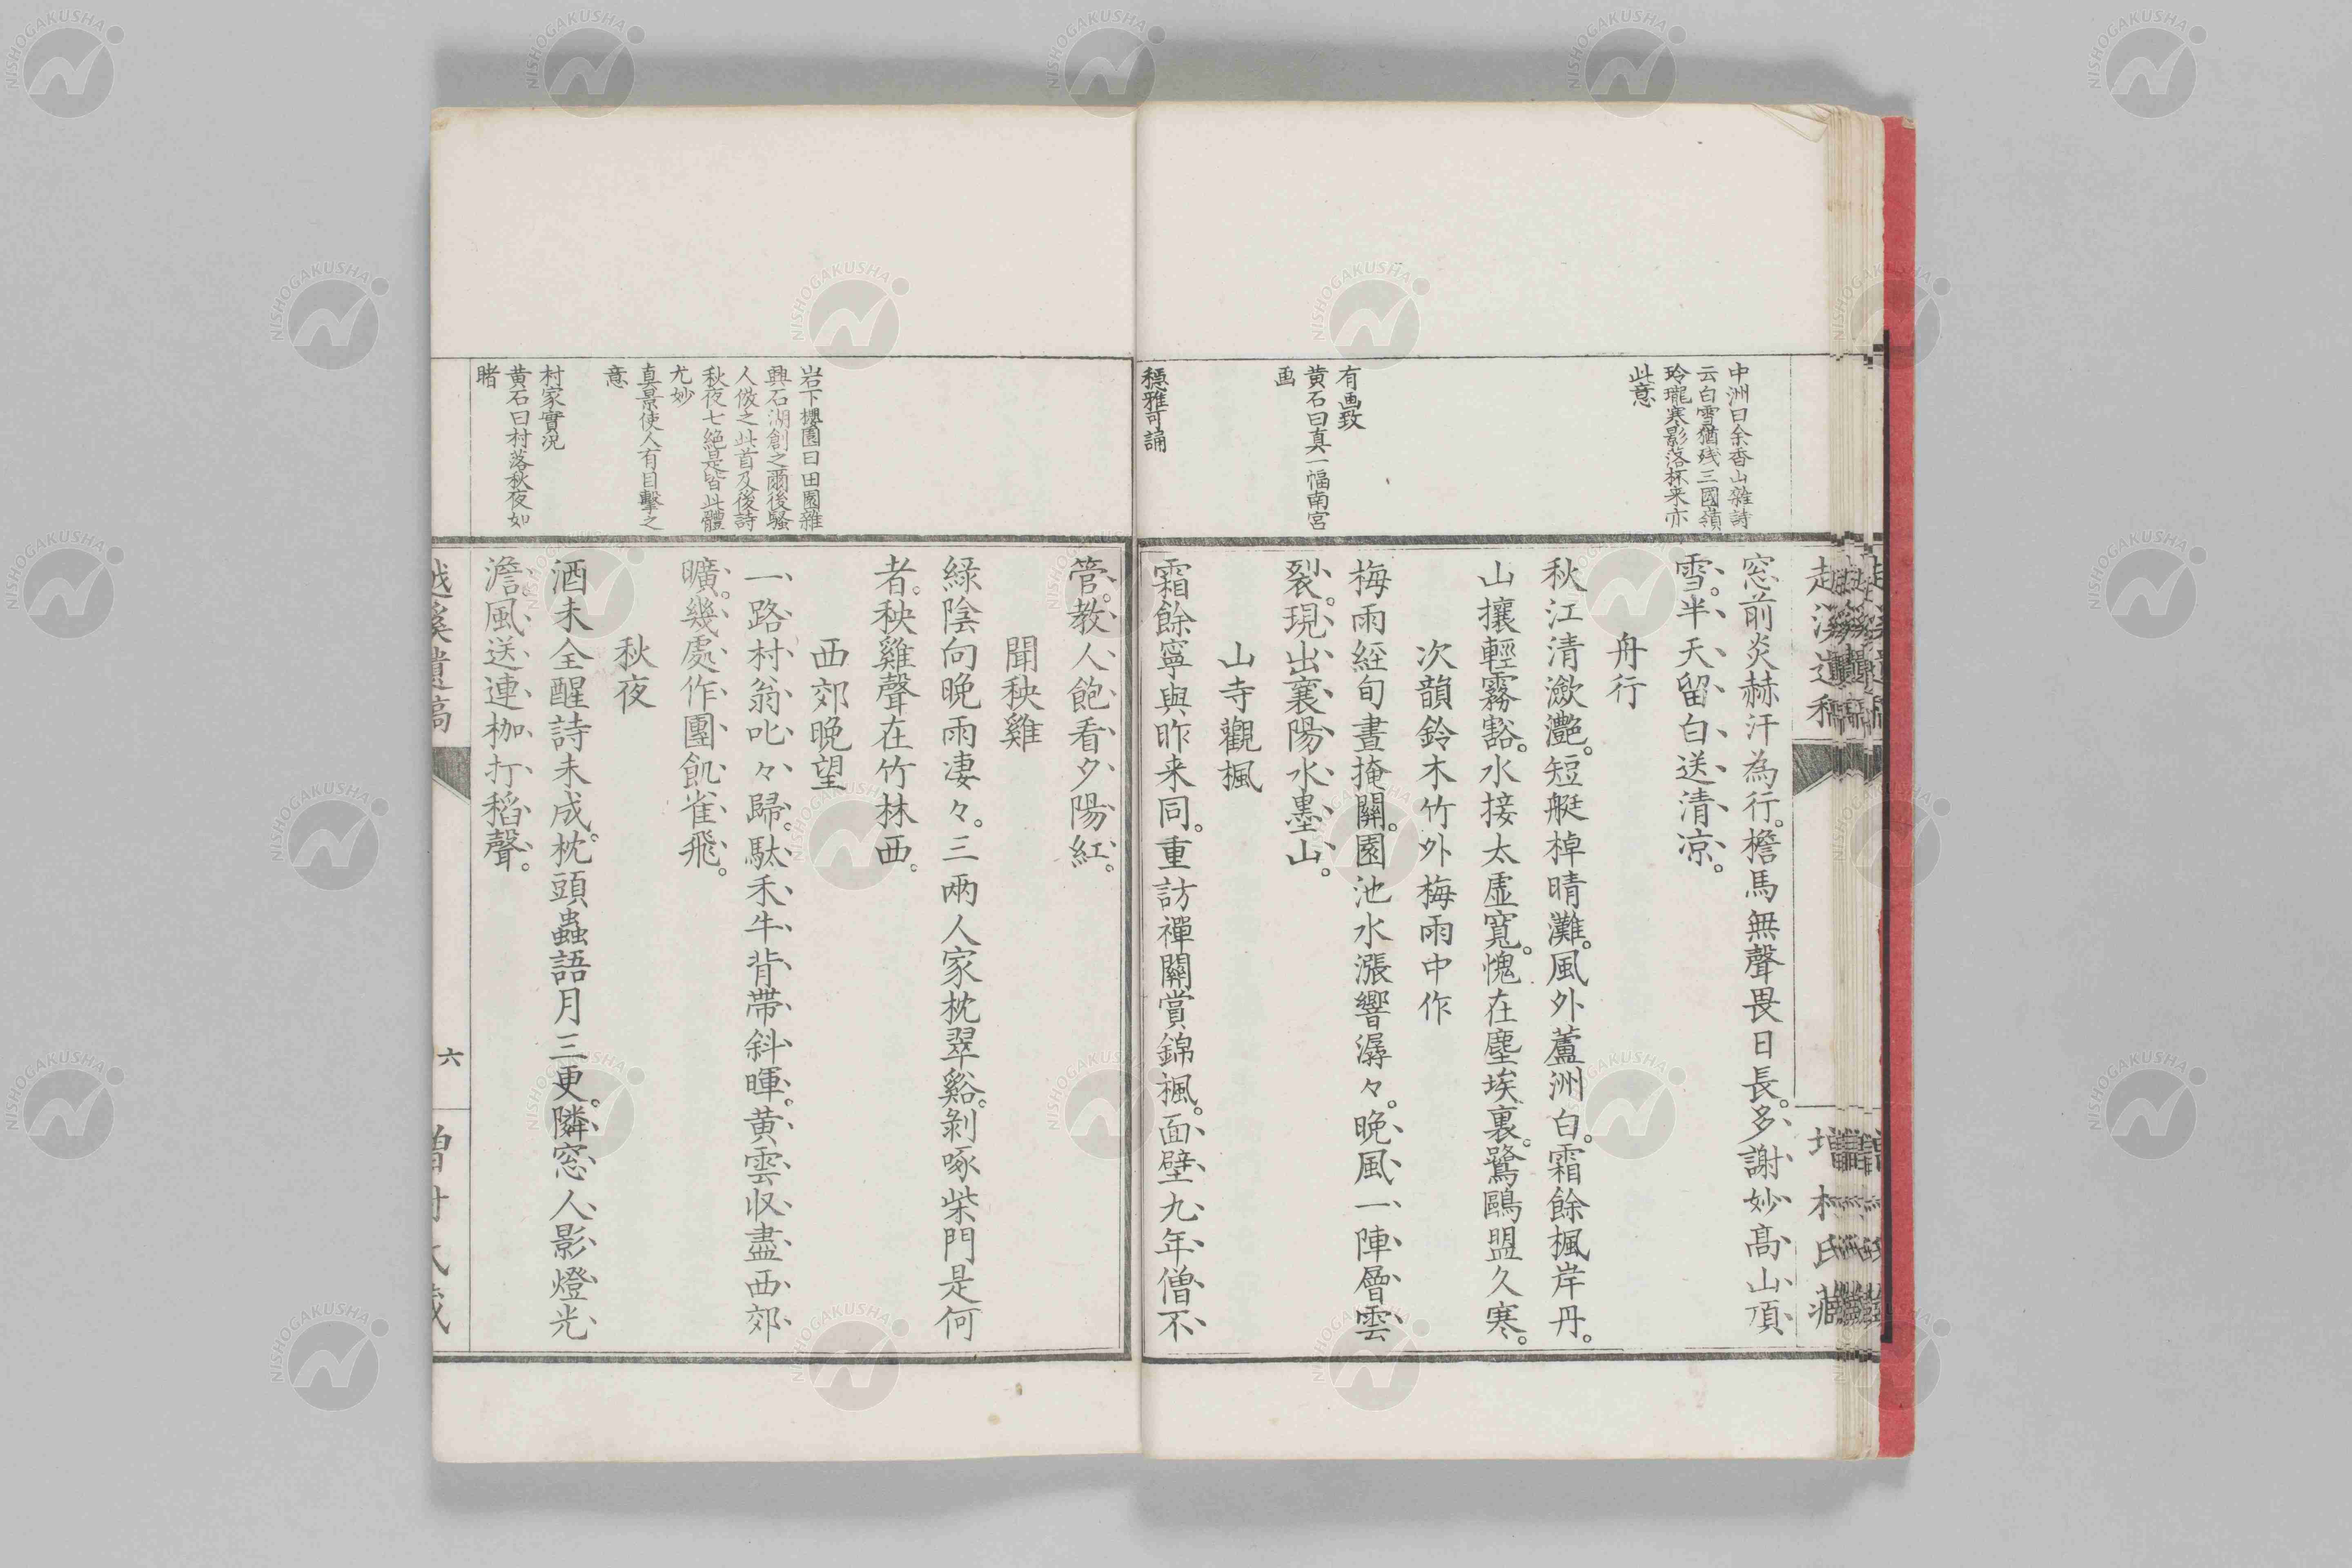 中洲曰余香山雜詩
云白雪猶残三國嶺
玲瓏寒影落杯来亦
此意
有画致
黄石曰真一幅南宮
画
穏雅可誦
窓前炎赫汗為行。檐馬無聲畏日長。多謝妙高山頂
雪。半天留白送清凉。
舟行
秋江清瀲灔。短艇棹晴灘。風外蘆洲白。霜餘楓岸丹。
山攘輕霧豁。水接太虚寛。愧在塵埃裏。鷺鷗盟久寒。
次韻鈴木竹外梅雨中作
梅雨経旬晝掩關。園池水漲響潺々。晩風一陣層雲
裂。現出襄陽水墨山。
山寺觀楓
霜餘寧與昨来同。重訪禪關賞錦楓。面壁九年僧不
岩下櫻園曰田園雜
興石湖創之爾後騷
人倣之此首及後詩
秋夜七絶是皆此體
尤妙
真景使人有目擊之
意
村家實況
黄石曰村落秋夜如
睹
管。教人飽看夕陽紅。
聞秧雞
緑陰向晩雨凄々。三兩人家枕翠谿。剝啄柴門是何
者。秧雞聲在竹林西。
西郊晩望
一路村翁叱々歸。駄禾牛背帶斜暉。黄雲収盡西郊
曠。幾處作團飢雀飛。
秋夜
酒未全醒詩未成。枕頭蟲語月三更。隣窓人影燈光
澹。風送連枷打稻聲。
越溪遺稿
六
増村氏蔵
NISHOGAKUSHA